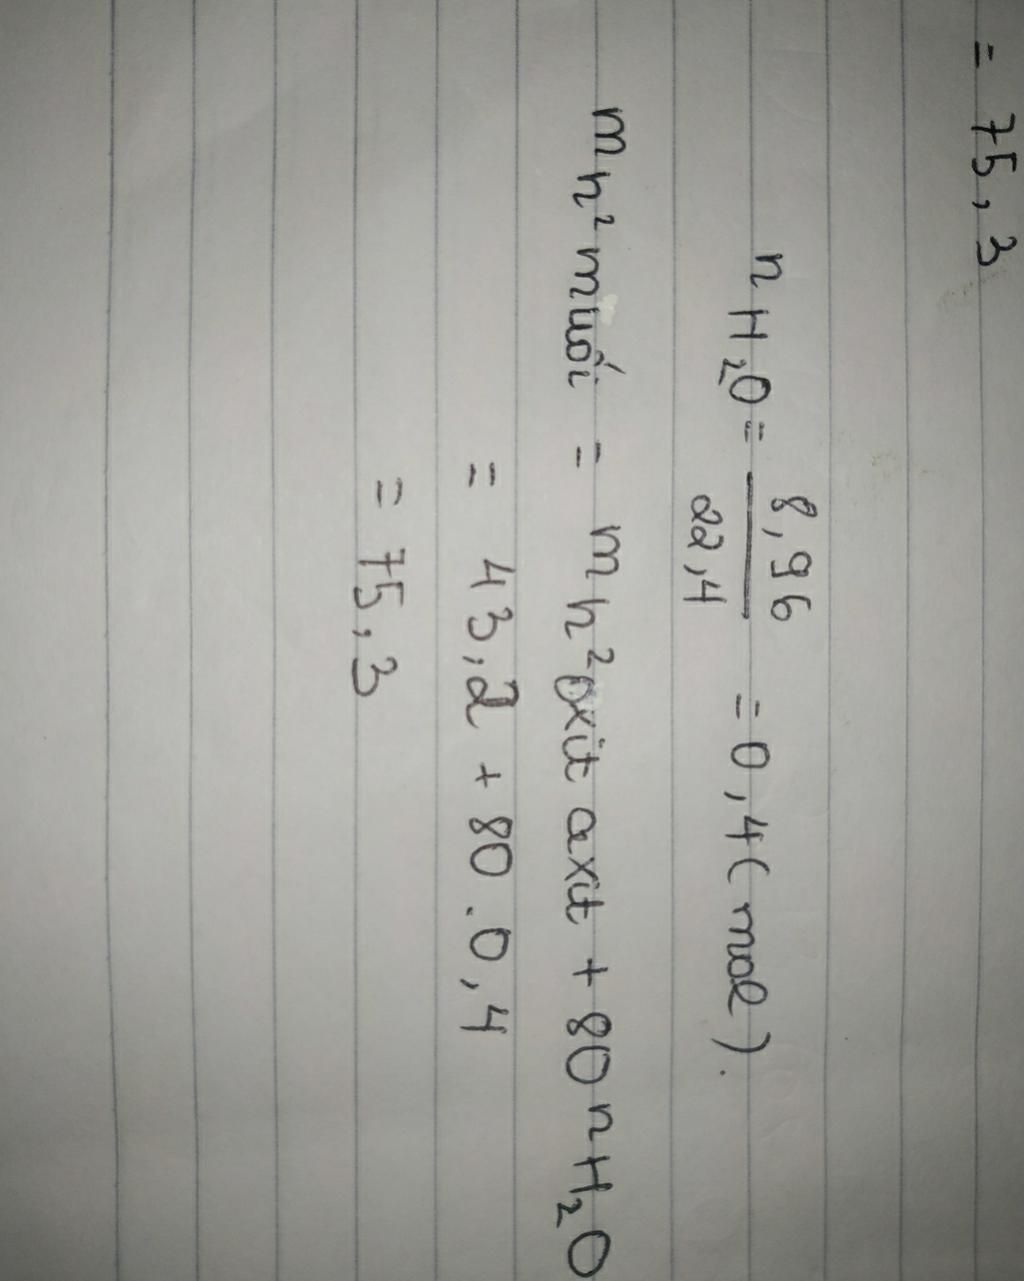 = 75,3
n H₂O = 8,96 / 22,4 = 0,4 (mol).
m h² muối = m h² oxit axit + 80 n H₂O
= 43,2 + 80 . 0,4
= 75,3